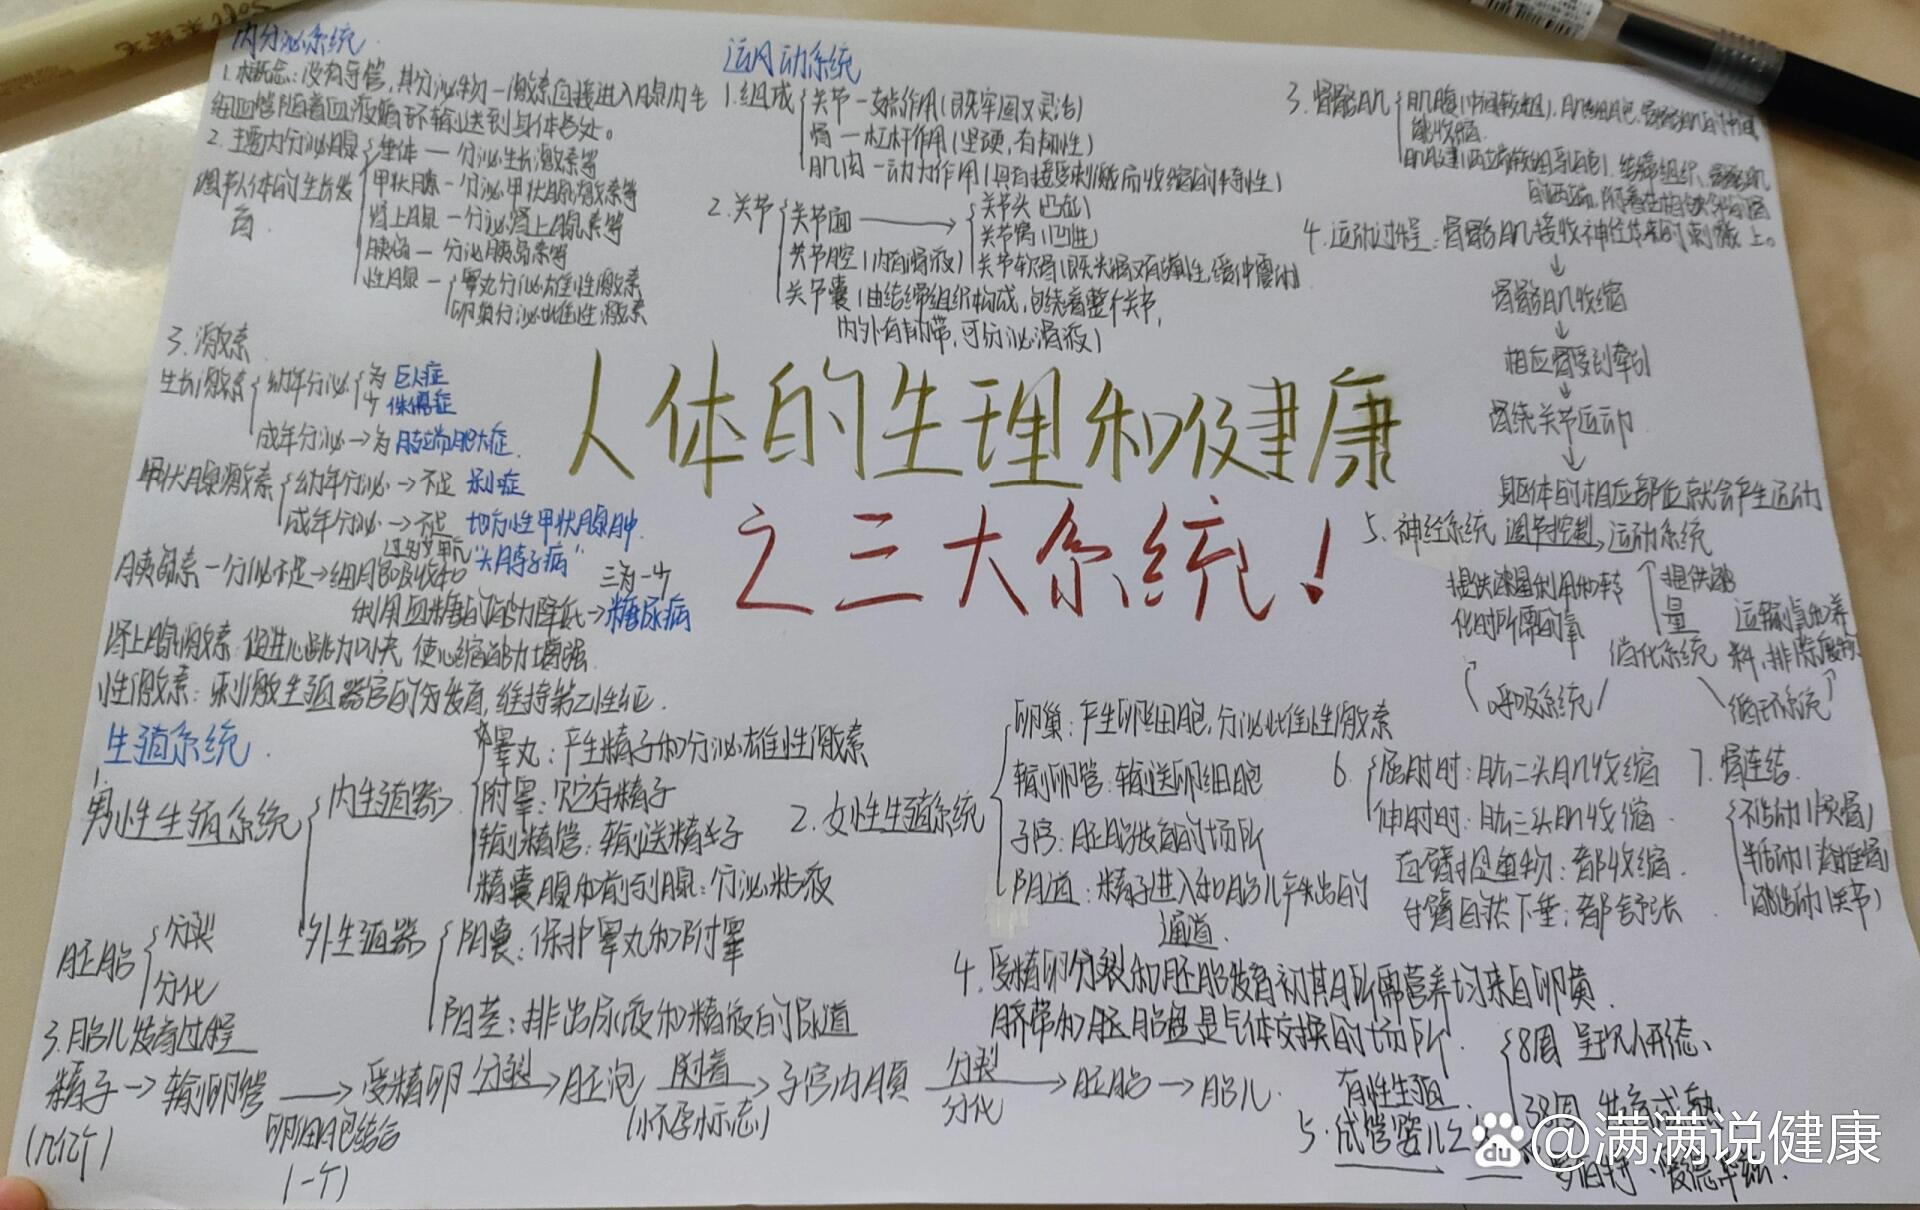 内分泌系统
1.概念:没有导管,其分泌物—激素直接进入腺内毛
细血管随着血液循环输送到身体各处。
2.主要内分泌腺
调节人体的生长发
育.
垂体—分泌生长激素等
甲状腺—分泌甲状腺激素等
肾上腺—分泌肾上腺素等
胰岛—分泌胰岛素等
性腺—睾丸分泌雄性激素
卵巢分泌雌性激素
3.激素
生长激素
幼年分泌
为 巨人症
少 侏儒症
成年分泌→为肢端肥大症.
甲状腺激素
幼年分泌→不足 呆小症
成年分泌→不足 地方性甲状腺肿.
"大脖子病"
胰岛素—分泌不足→细胞吸收和
利用血糖的能力降低→糖尿病
三为一少
肾上腺激素 促进心跳加快 使心缩能力增强.
性激素:刺激生殖器官的发育,维持第二性征.
运动系统
1.组成
关节—支点作用(既牢固又灵活)
骨—杠杆作用(坚硬,有韧性)
肌肉—动力作用(具有接受刺激而收缩的特性)
2.关节
关节面
关节头(凸出)
关节窝(凹进)
关节腔(内有滑液)
关节软骨(既光滑又有弹性,缓冲震动)
关节囊(由结缔组织构成,包绕着整个关节,
内外有韧带,可分泌滑液)
3.骨骼肌
肌腹(中间较粗),肌细胞,骨骼肌的中间
能收缩.
结缔组织,骨骼肌
的两端,附着在相邻的骨
上。
4.运动过程:骨骼肌接收神经传来的刺激
↓
骨骼肌收缩
↓
相应骨受到牵引
↓
骨绕关节运动
↓
躯体的相应部位就会产生运动
人体的生理和健康
之三大系统!
5.神经系统 调节控制→运动系统
提供能量利用和转
化时所需的氧
提供能
量
运输氧和养
料,排除废物
消化系统
呼吸系统
循环系统
6.
屈肘时:肱二头肌收缩
伸肘时:肱三头肌收缩.
直臂提重物:都收缩.
手臂自然下垂:都舒张
7.骨连结.
不活动(颅骨)
半活动(脊椎骨)
能活动(关节)
生殖系统.
1.
男性生殖系统
内生殖器
睾丸:产生精子和分泌雄性激素
附睾:贮存精子
输精管:输送精子
精囊腺和前列腺:分泌粘液
外生殖器
阴囊:保护睾丸和附睾
阴茎:排出尿液和精液的通道
2.女性生殖系统
卵巢:产生卵细胞,分泌雌性激素
输卵管:输送卵细胞
子宫:胚胎发育的场所
阴道:精子进入和胎儿产出的
通道.
胚胎
分裂
分化
3.胎儿发育过程
精子→输卵管→受精卵 分裂→胚泡 附着→子宫内膜 分裂 分化→胚胎→胎儿.
(几亿个)
卵细胞结合
(一个)
(怀孕标志)
4.受精卵分裂和胚胎发育初期所需营养均来自卵黄.
脐带和胚胎盘是气体交换的场所.
8周 呈现人形态、
38周 发育成熟
有性生殖
5.试管婴儿之父
@满满说健康